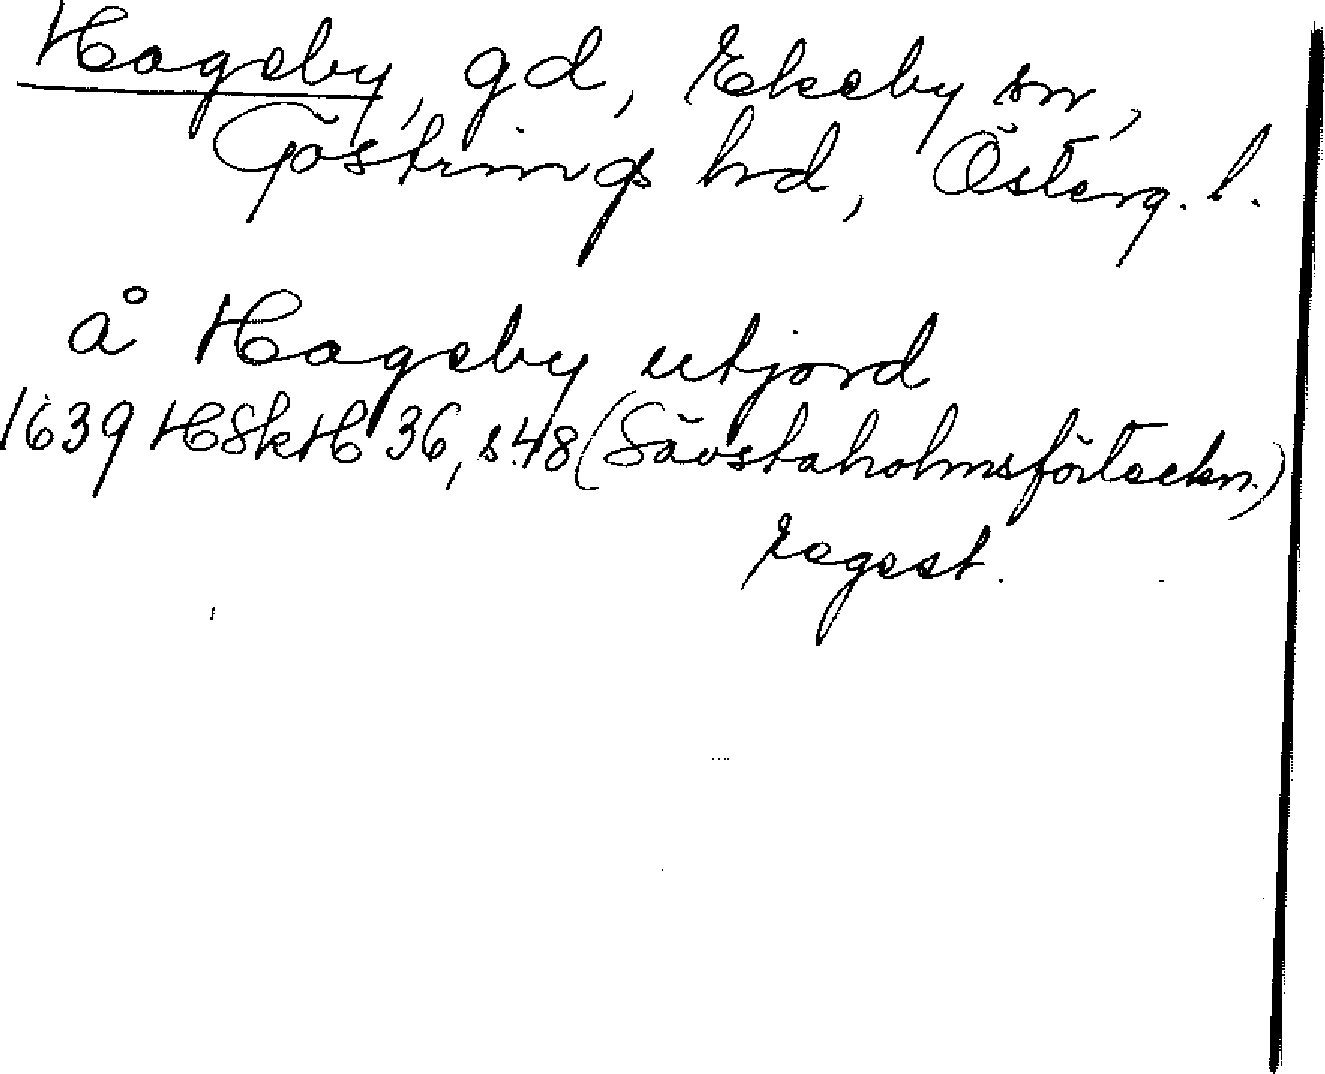 Hageby, gd, Ekeby sn,
Göstrings hrd, Österg. l.
å Hageby utjord
1639 HSkH 36, s. 48 (Sävstaholmsförteckn.)
regest.